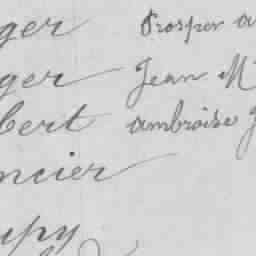 ger Prosper a
ger Jean M
bert ambroise J
ncier
upy